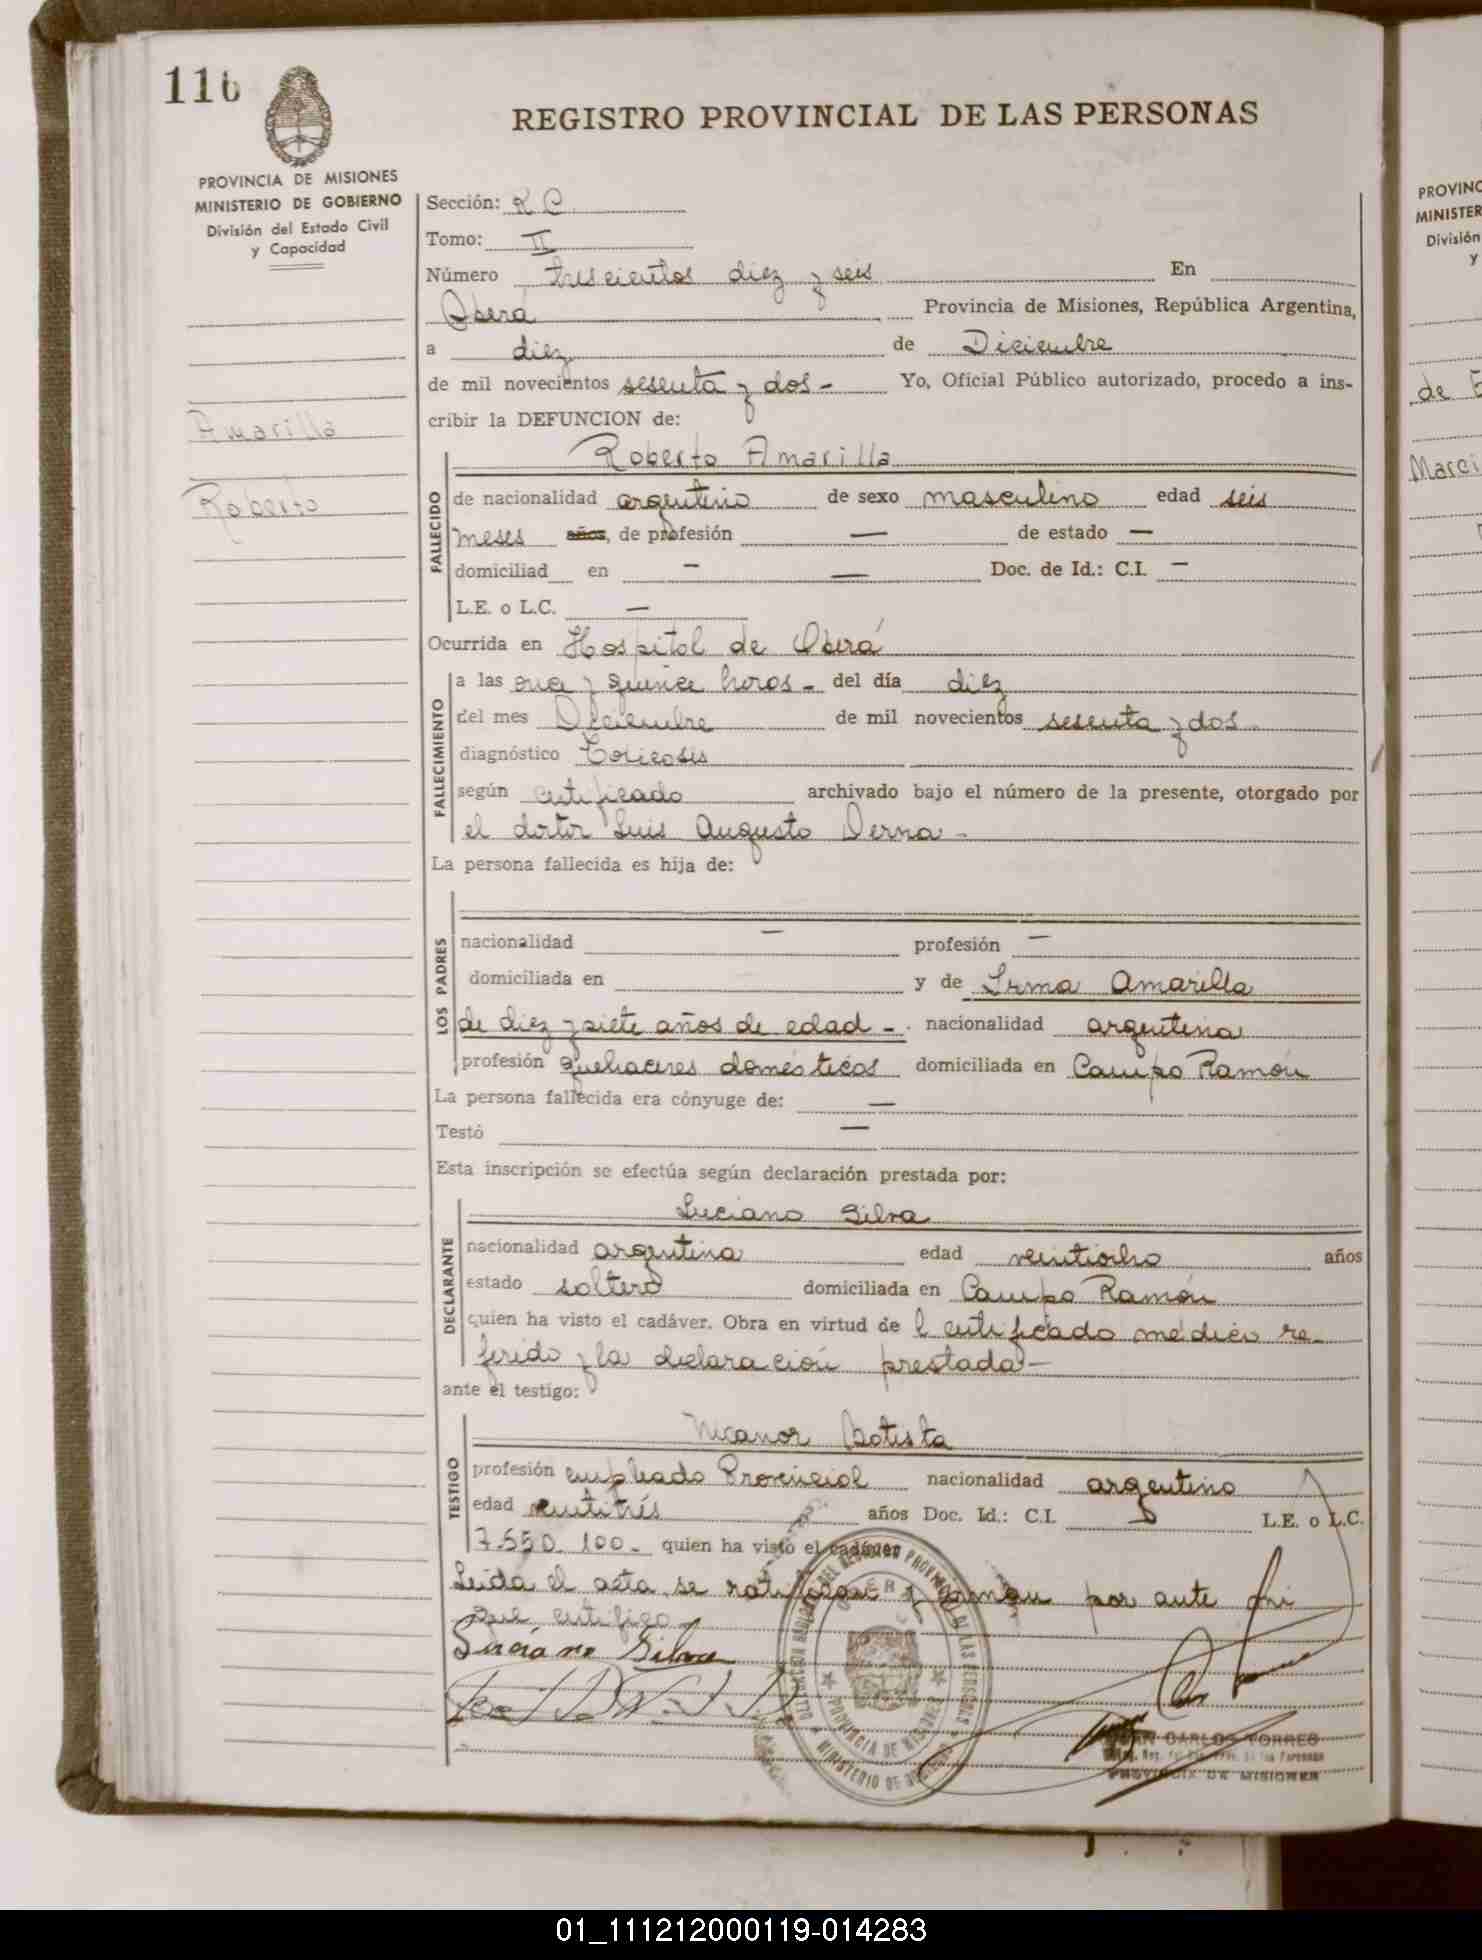 116
REGISTRO PROVINCIAL DE LAS PERSONAS
PROVINCIA DE MISIONES
MINISTERIO DE GOBIERNO
División del Estado Civil
y Capacidad
Amarilla
Roberto
Sección: R C
Tomo: II
Número trescientos diez y seis En
Oberá Provincia de Misiones, República Argentina,
a diez de Diciembre
de mil novecientos sesenta y dos - Yo, Oficial Público autorizado, procedo a ins-
cribir la DEFUNCION de:
Roberto Amarilla
FALLECIDO
de nacionalidad argentino de sexo masculino edad seis
meses años, de profesión — de estado —
domiciliad en - — Doc. de Id.: C.I. —
L.E. o L.C. —
Ocurrida en Hospital de Oberá
FALLECIMIENTO
a las once y quince horas - del día diez
del mes Diciembre de mil novecientos sesenta y dos
diagnóstico Toxicosis
según certificado archivado bajo el número de la presente, otorgado por
el doctor Luis Augusto Derna -
La persona fallecida es hija de:
LOS PADRES
nacionalidad — profesión —
domiciliada en y de Irma Amarilla
de diez y siete años de edad - nacionalidad argentina
profesión quehaceres domésticos domiciliada en Campo Ramón
La persona fallecida era cónyuge de: —
Testó —
Esta inscripción se efectúa según declaración prestada por:
Luciano Silva
DECLARANTE
nacionalidad argentina edad veintiocho años
estado soltero domiciliada en Campo Ramón
quien ha visto el cadáver. Obra en virtud de l certificado médico re-
ferido y la declaración prestada —
ante el testigo:
Nicanor Batista
TESTIGO
profesión empleado Provincial nacionalidad argentino
edad veintitrés años Doc. Id.: C.I. L.E. o L.C.
7.550.100 - quien ha visto el cadáver
Leida el acta, se ratifican y firman por ante mi
que certifico -
Luciano Silva
JUAN CARLOS TORRES
PROVINCIA DE MISIONES
DELEGACION DEL REGISTRO PROVINCIAL DE LAS PERSONAS
OBERA
PROVINCIA DE MISIONES
MINISTERIO DE GOBIERNO
PROVINC
MINISTER
División
y
de E
Marci
01_111212000119-014283